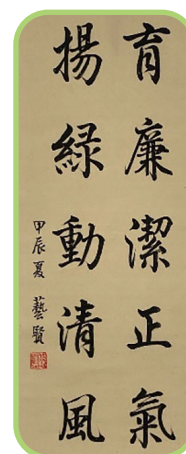 育廉潔正氣
揚綠動清風
甲辰夏 藝賢